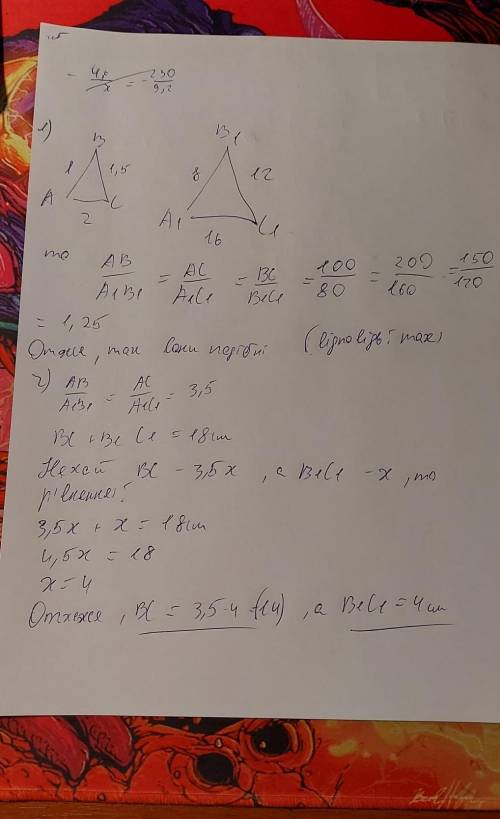 - 4x/x = - 230/9,2
1)
B
1 1,5
A C
2
B1
8 12
A1 C1
16
то AB/A1B1 = AC/A1C1 = BC/B1C1 = 100/80 = 200/160 = 150/120
= 1,25
Отже, так вони подібні (відповідь: так)
2) AB/A1B1 = AC/A1C1 = 3,5
BC + B1C1 = 18см
Нехай BC - 3,5x, а B1C1 - x, то
рівняння:
3,5x + x = 18см
4,5x = 18
x = 4
Отже, BC = 3,5·4 (14), а B1C1 = 4см